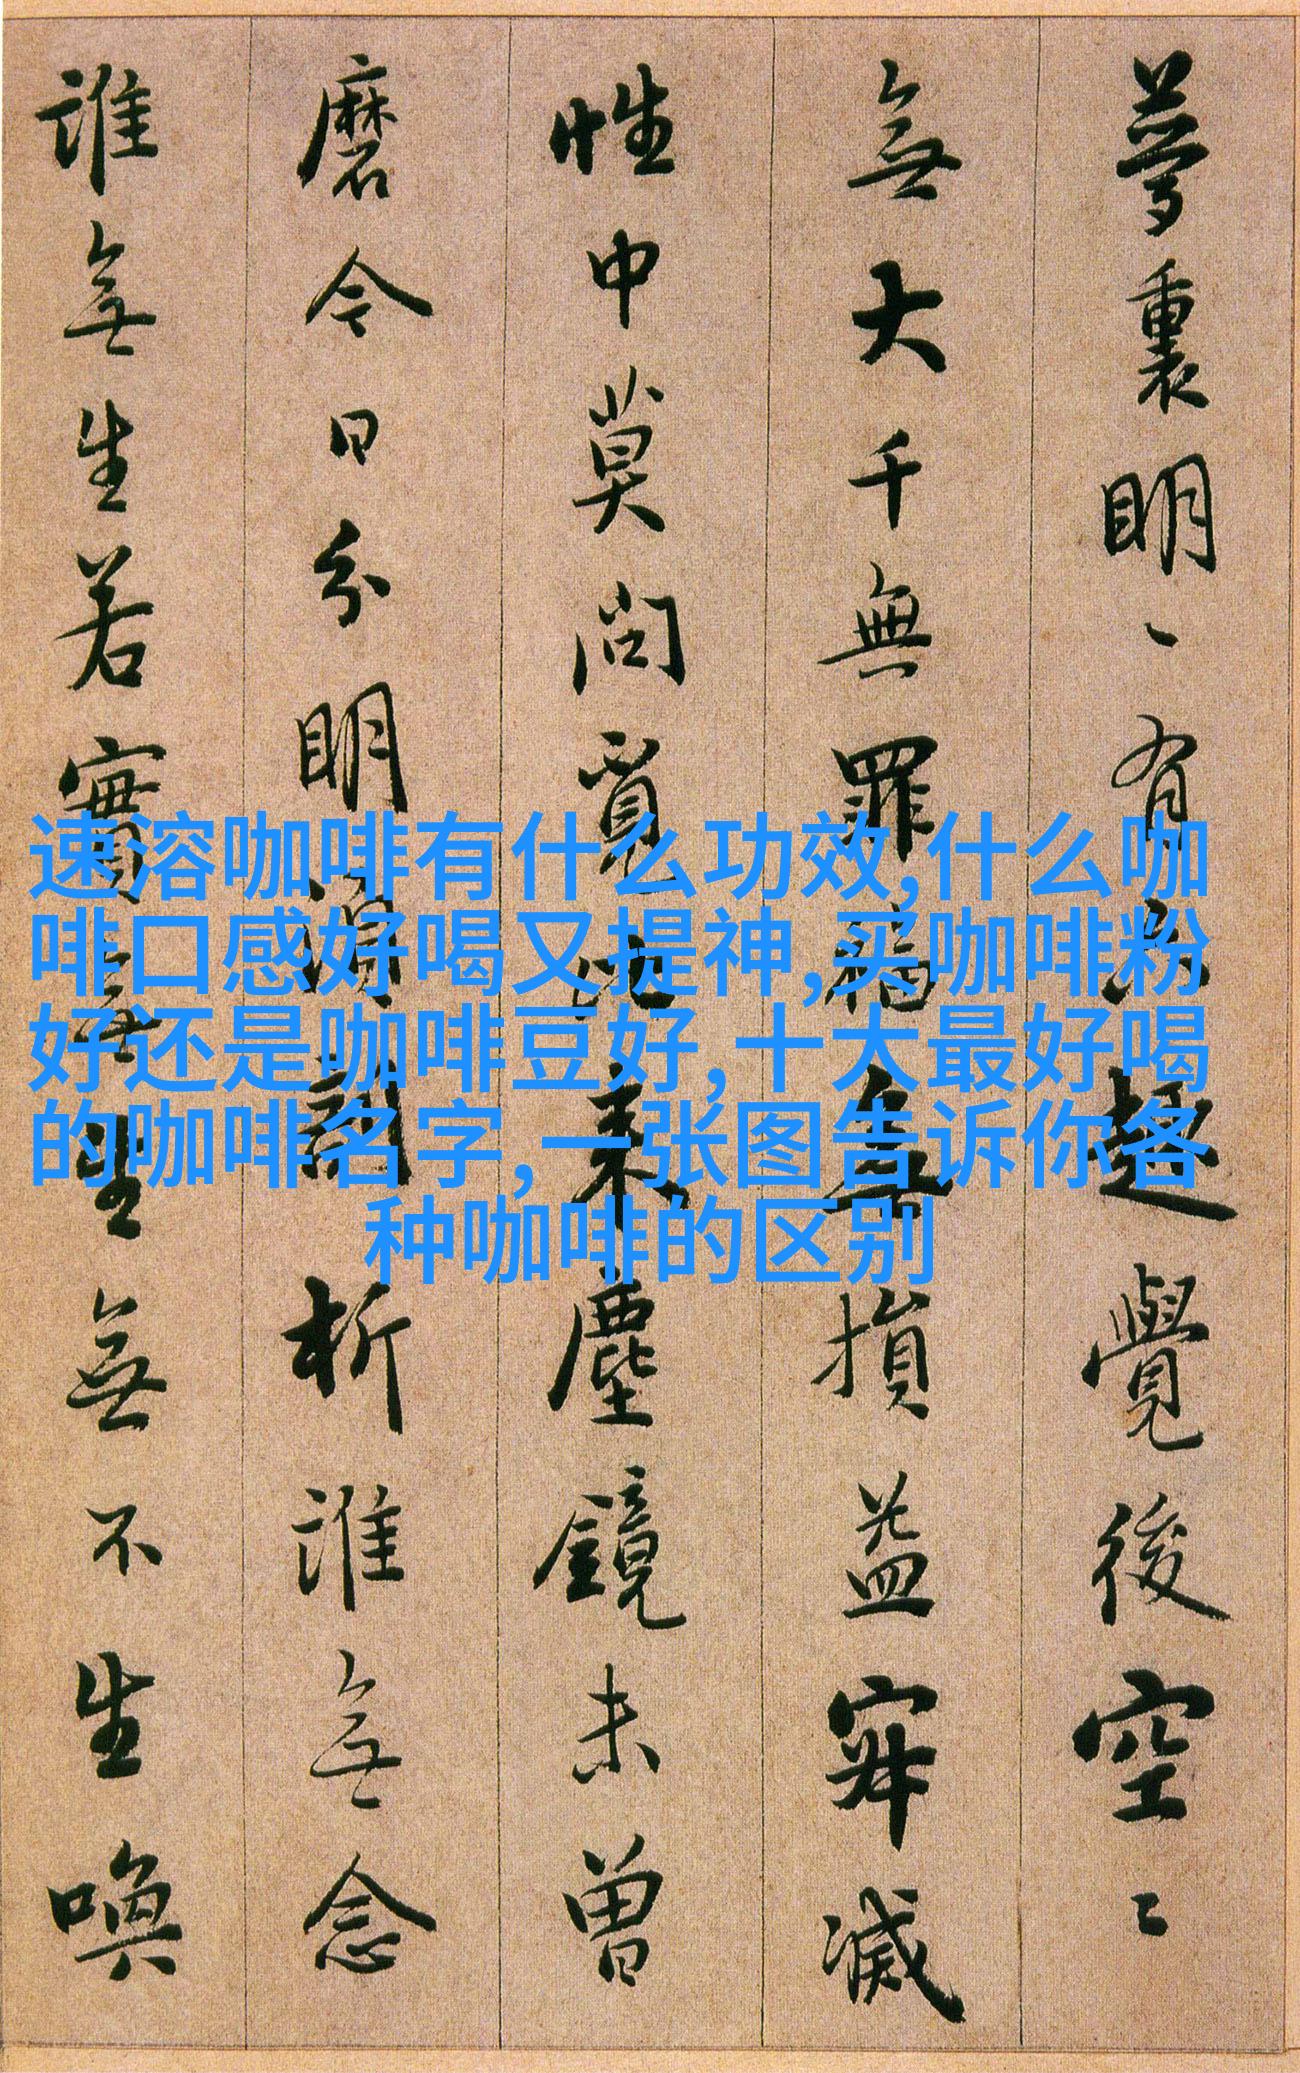 夢裏明〻有六趣覺後空〻
無大千無罪福無損益寂滅
性中莫問覓比來塵鏡未曾
磨今日分明須剖析誰無念
誰無生若實無生無不生喚
速溶咖啡有什么功效,什么咖
啡口感好喝又提神,买咖啡粉
好还是咖啡豆好,十大最好喝
的咖啡名字,一张图告诉你各
种咖啡的区别